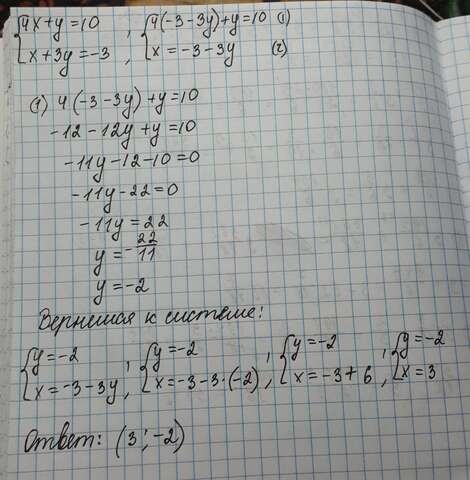 {4x+y=10 , {4(-3-3y)+y=10 (1)
{x+3y=-3 , {x=-3-3y (2)
(1) 4(-3-3y)+y=10
-12-12y+y=10
-11y-12-10=0
-11y-22=0
-11y=22
y=-22/11
y=-2
Вернемся к системе:
{y=-2 ; {y=-2 ; {y=-2 ; {y=-2
{x=-3-3y , {x=-3-3·(-2) , {x=-3+6 , {x=3
Ответ: (3;-2)